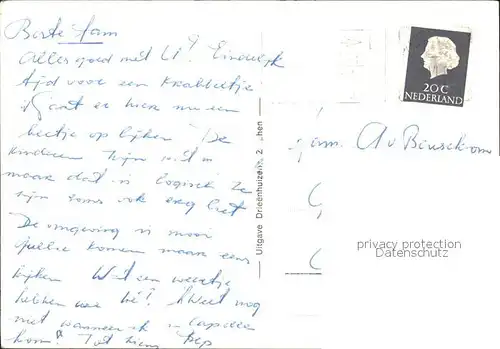 Beste fam
Alles goed met U? Eindelijk
tijd voor een krabbeltje
't gaat er hier nu een
beetje op lijken. De
kinderen zijn
maar dat is logisch ze
zijn soms ook erg lief
De omgeving is mooi
jullie komen maar eens
kijken Wat een weertje
hebben we hè! Weet nog
niet wanneer ik in Capelle
kom! Tot ziens Bep
Uitgave Drieënhuizen
20 C
NEDERLAND
fam. A v Beusekom
privacy protection
Datenschutz